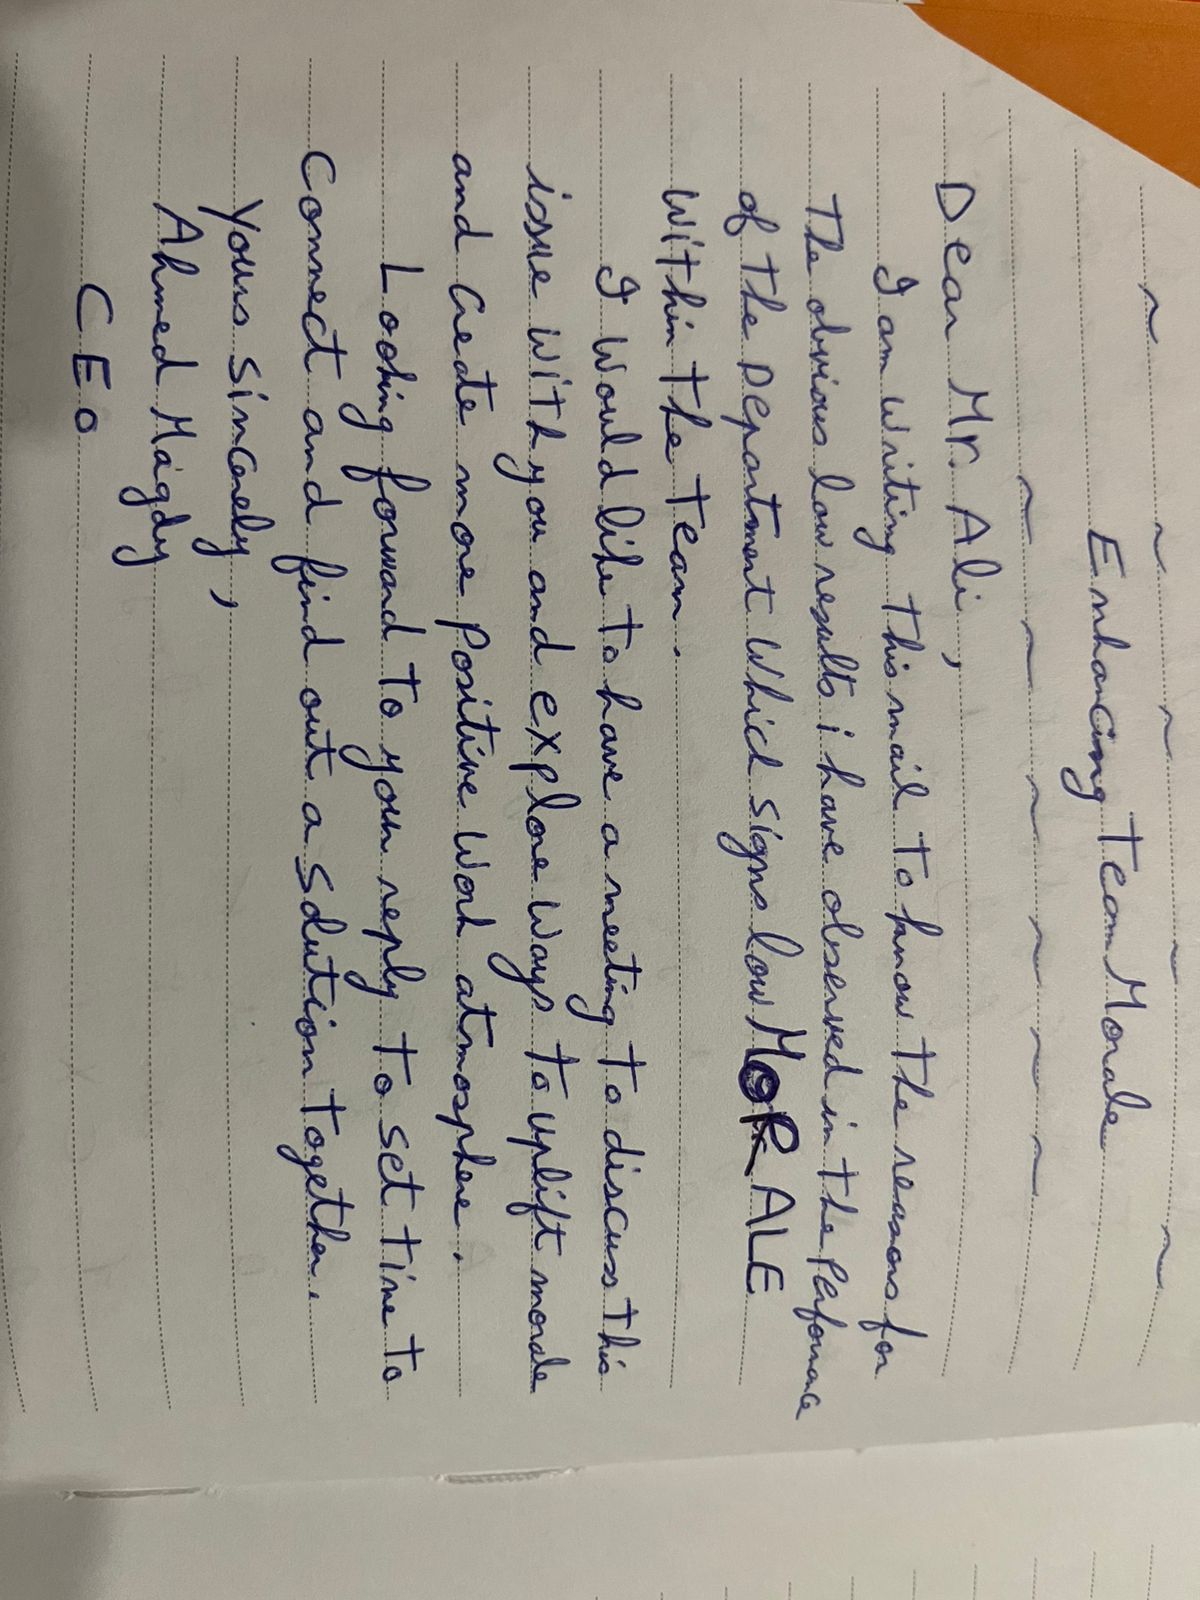 Enhancing Team Morale
Dear Mr. Ali,
I am writing this mail to know the reasons for
the obvious low results i have observed in the performance
of the department which signs low MORALE
within the team.
I would like to have a meeting to discuss this
issue with you and explore ways to uplift morale
and create more positive work atmosphere.
Looking forward to your reply to set time to
connect and find out a solution together.
Yours sincerely,
Ahmed Magdy
CEO